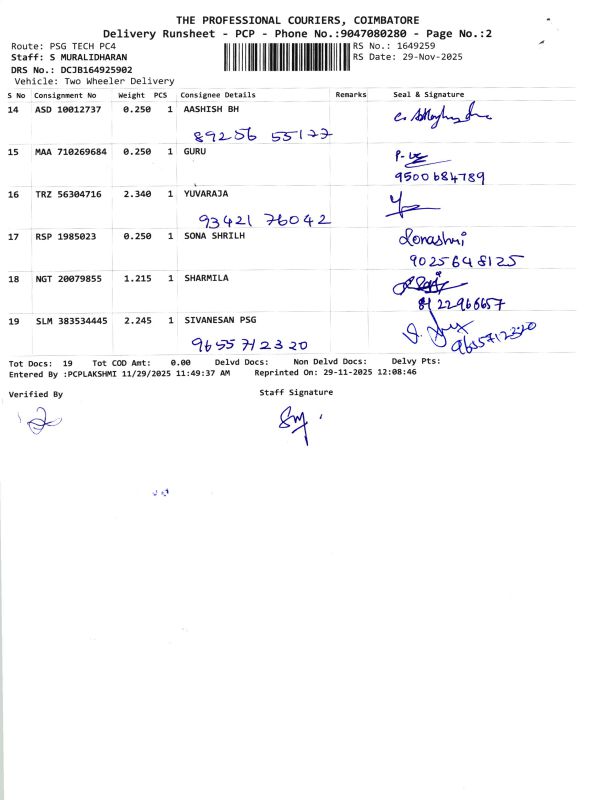 THE PROFESSIONAL COURIERS, COIMBATORE
Delivery Runsheet - PCP - Phone No.:9047080280 - Page No.:2
Route: PSG TECH PC4 RS No.: 1649259
Staff: S MURALIDHARAN RS Date: 29-Nov-2025
DRS No.: DCJB164925902
Vehicle: Two Wheeler Delivery
S No Consignment No Weight PCS Consignee Details Remarks Seal & Signature
14 ASD 10012737 0.250 1 AASHISH BH
89256 55177
15 MAA 710269684 0.250 1 GURU
9500684789
16 TRZ 56304716 2.340 1 YUVARAJA
93421 76042
17 RSP 1985023 0.250 1 SONA SHRILH Sonashri
9025648125
18 NGT 20079855 1.215 1 SHARMILA
8122966657
19 SLM 383534445 2.245 1 SIVANESAN PSG
9655712320 9655712320
Tot Docs: 19 Tot COD Amt: 0.00 Delvd Docs: Non Delvd Docs: Delvy Pts:
Entered By :PCPLAKSHMI 11/29/2025 11:49:37 AM Reprinted On: 29-11-2025 12:08:46
Verified By Staff Signature